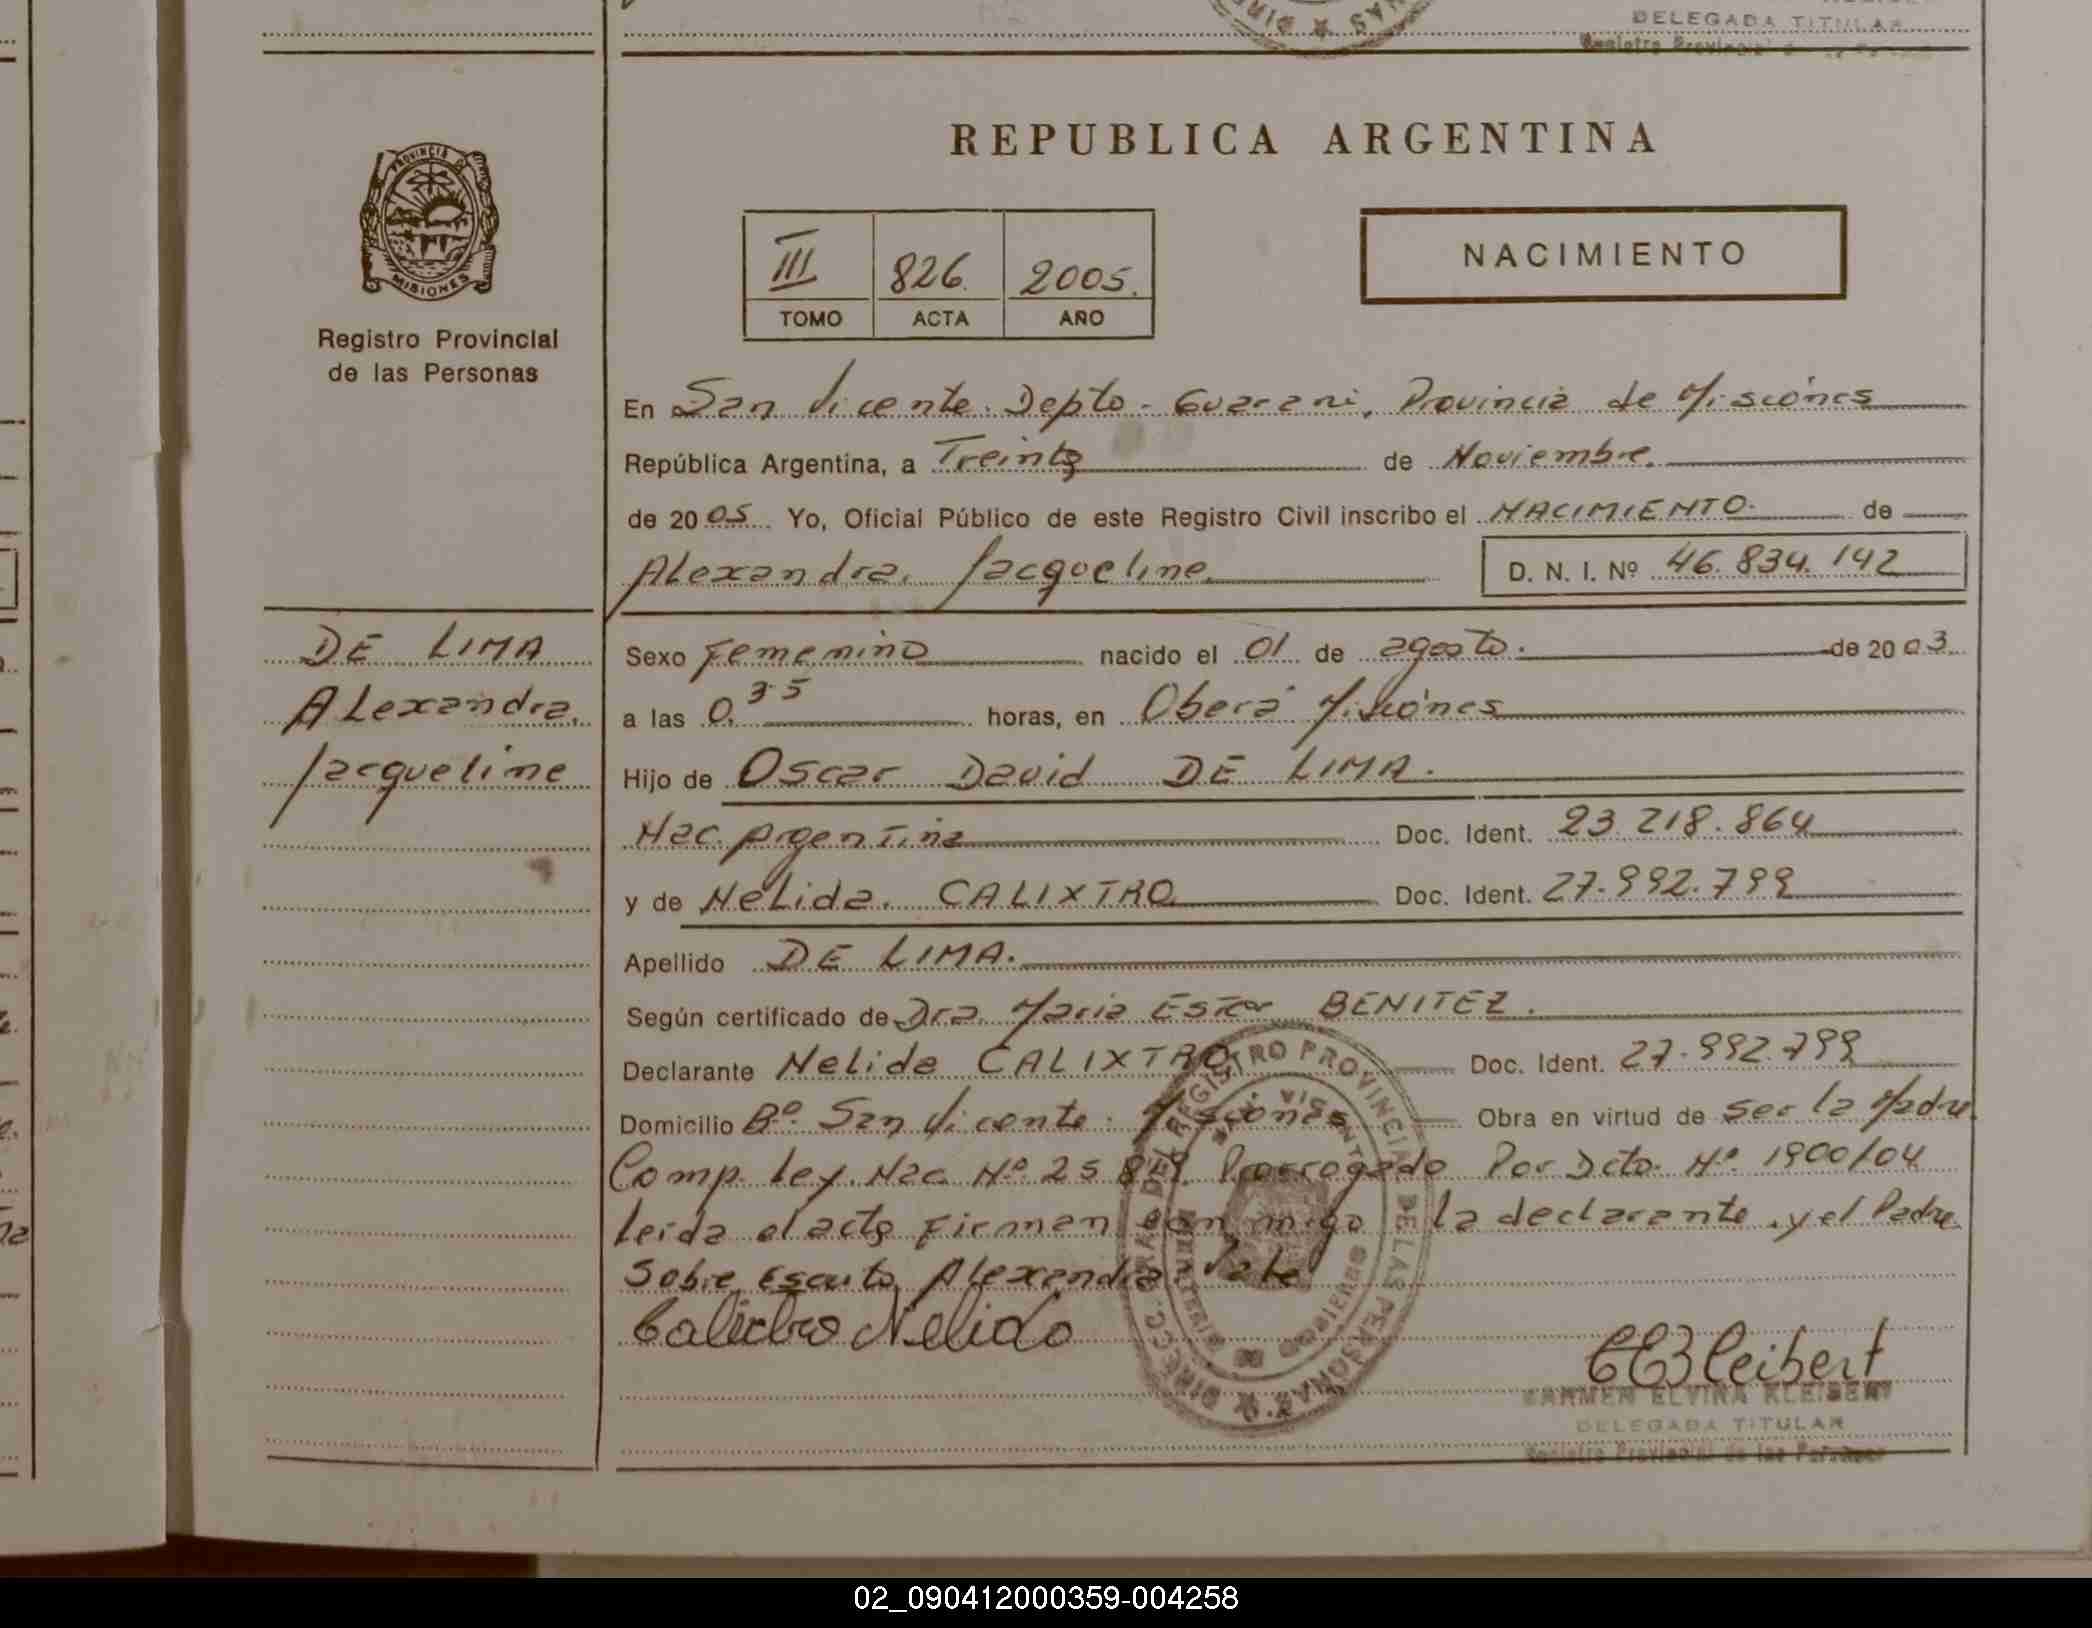 DELEGADA TITULAR
Registro Provincial
REPUBLICA ARGENTINA
PROVINCIA DE
MISIONES
Registro Provincial
de las Personas
III 826 2005.
TOMO ACTA AÑO
NACIMIENTO
En San Vicente. Depto. Guarani, Provincia de Misiónes
República Argentina, a Treinta de Noviembre.
de 2005 Yo, Oficial Público de este Registro Civil inscribo el NACIMIENTO. de
Alexandra, Jacqueline D. N. I. Nº 46.834.142
DE LIMA
Alexandra,
Jacqueline
Sexo Femenino nacido el 01 de agosto. de 2003
a las 0,35 horas, en Oberá Misiónes
Hijo de Oscar David DE LIMA.
Nac. Argentina Doc. Ident. 23.218.864
y de Nelida. CALIXTRO Doc. Ident. 27.992.799
Apellido DE LIMA.
Según certificado de Dra. Maria Ester BENITEZ.
Declarante Nelida CALIXTRO Doc. Ident. 27.992.799
Domicilio Bº. San Vicente. Misiónes Obra en virtud de ser la Madre.
Comp. Ley. Nac. Nº 25 Prorrogado Por Dcto. Nº. 1900/04
Leida el acta Firman con migo la declarante, y el Padre
Sobre Escrito, Alexandra Vale
Calictro Nelida
DIRECC. GRAL. DEL REGISTRO PROVINCIAL DE LAS PERSONAS
SAN VICENTE
MISIONES
CEKleibert
CARMEN ELVIRA KLEIBERT
DELEGADA TITULAR
Registro Provincial de las Personas
02_090412000359-004258